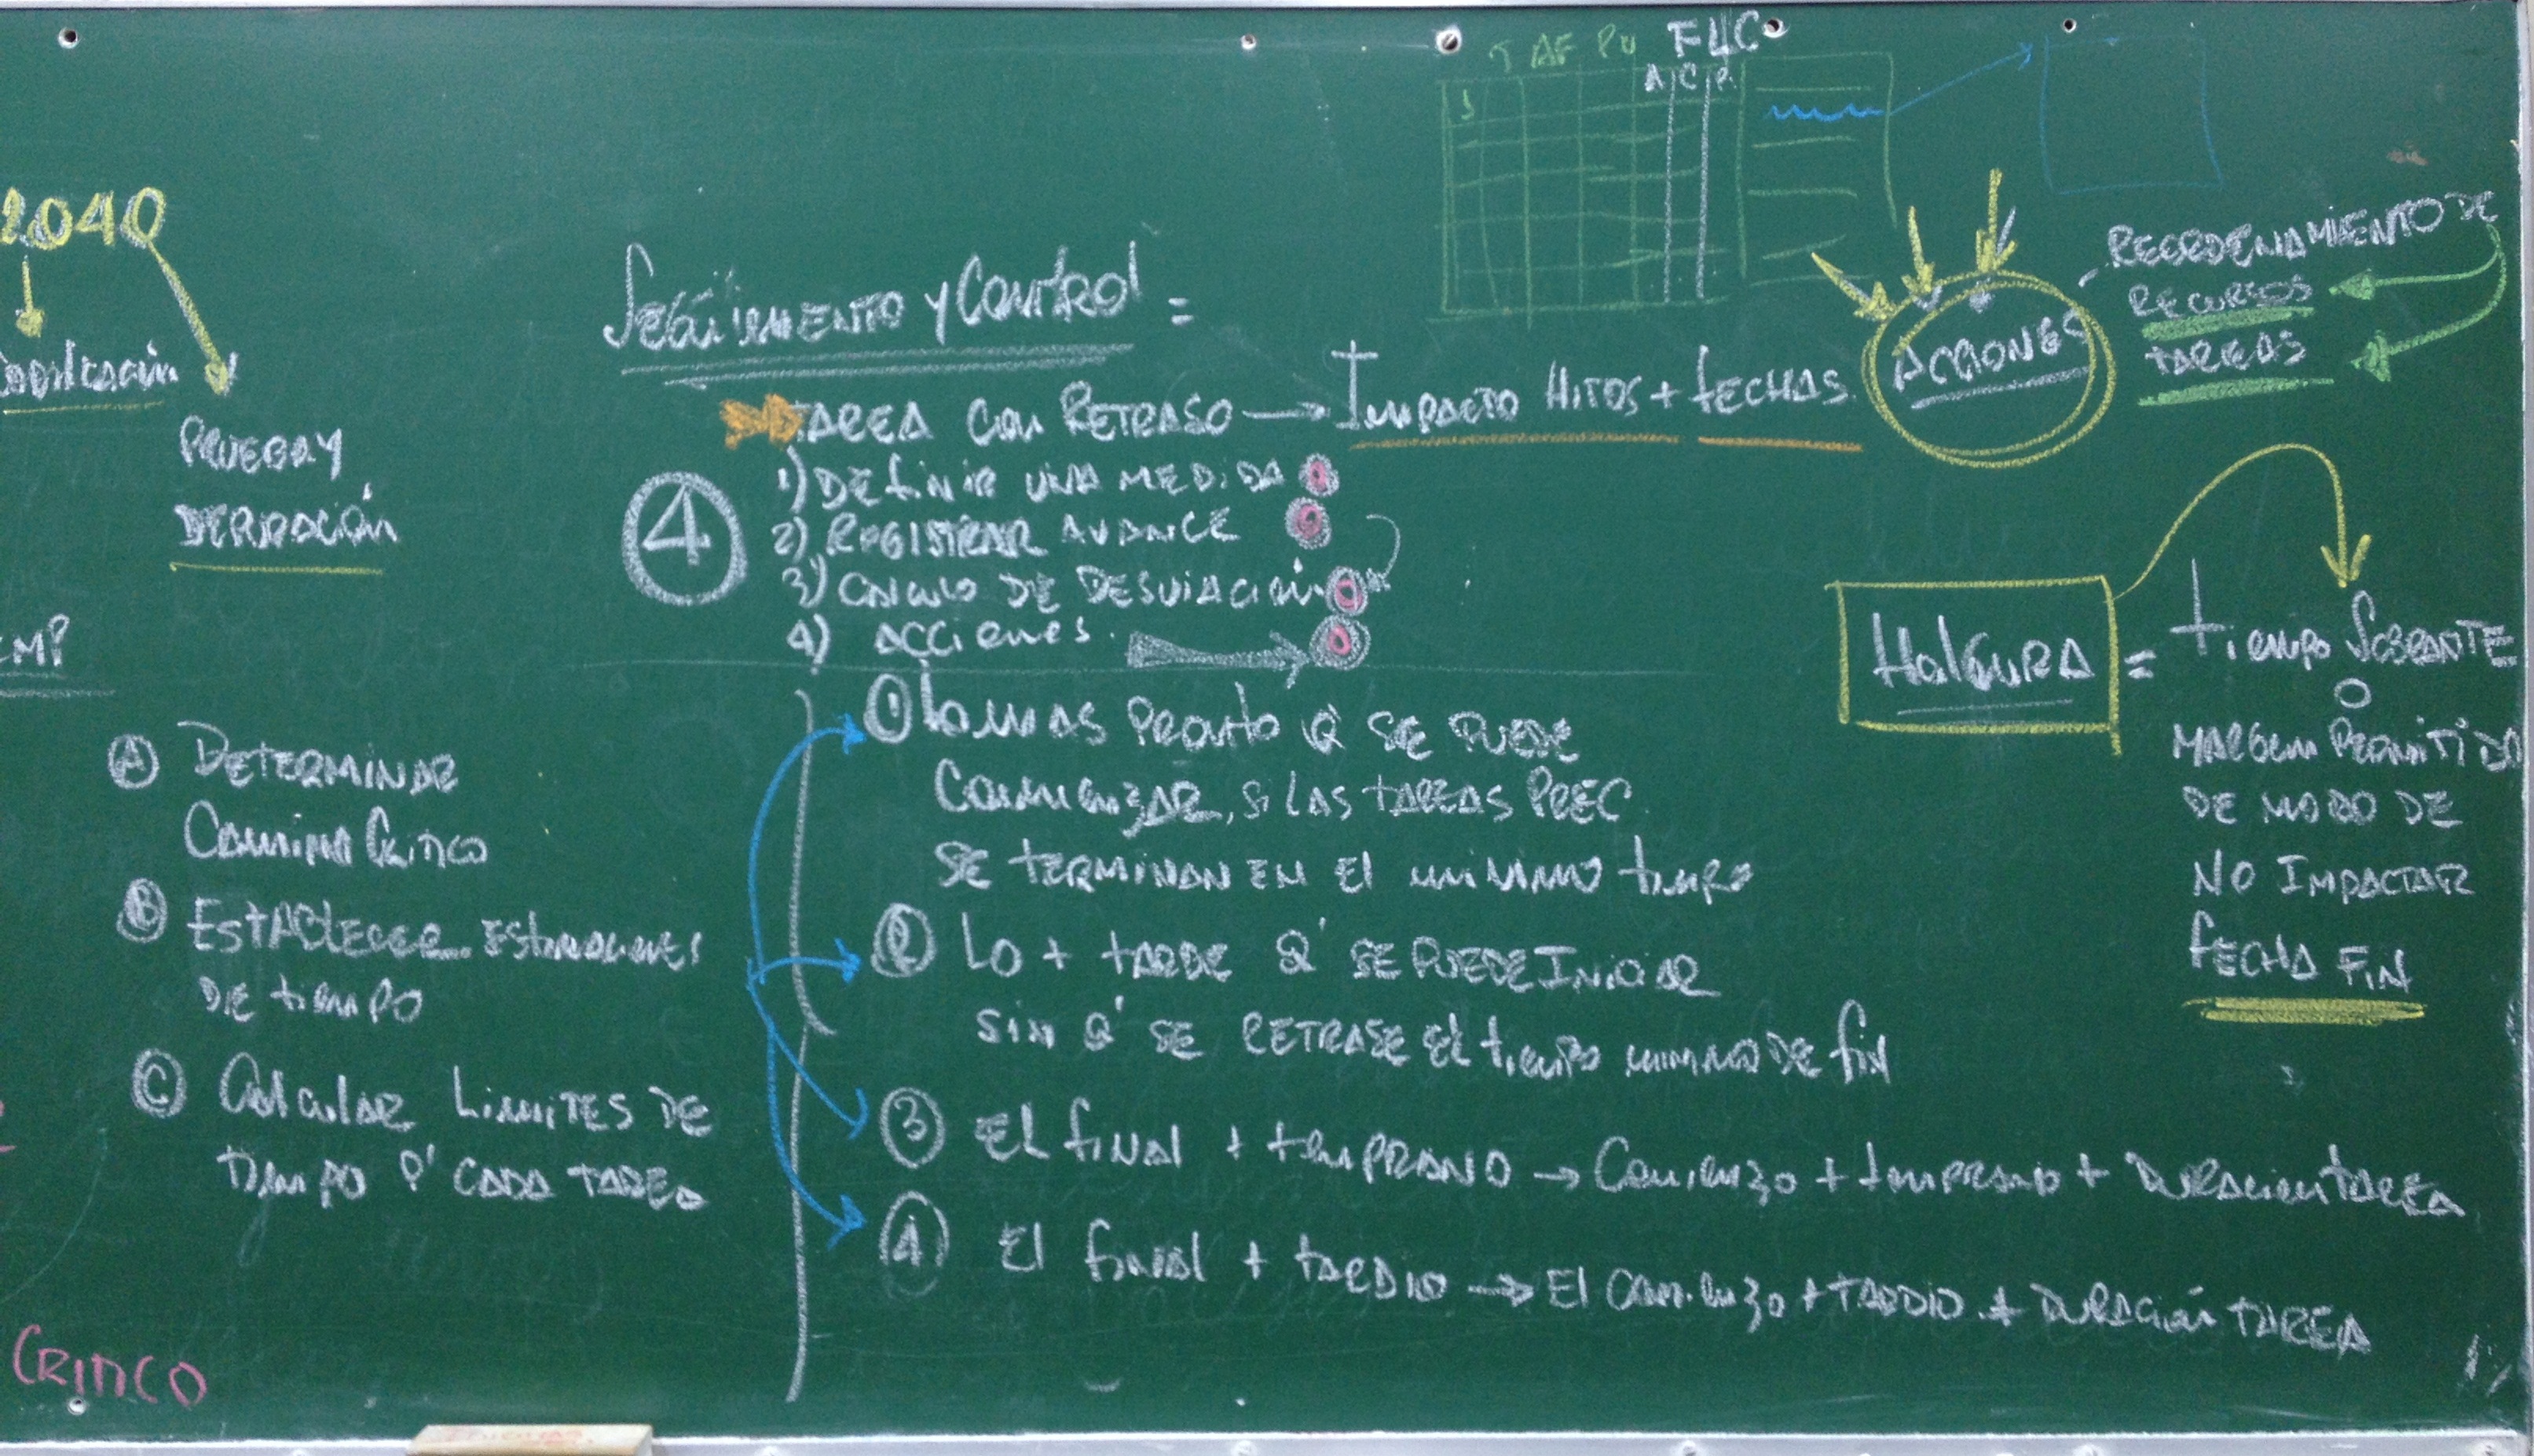 T AF PU FUC
A C P.
2040
Codificación
PRUEBA Y
DEPURACIÓN
CMP
Ⓐ DETERMINAR
Camino Critico
Ⓑ ESTABLECER ESTIMACIONES
DE tiempo
Ⓒ Calcular LIMITES DE
tiempo P' CADA TAREA
CRITICO
SEGUIMIENTO y Control =
TAREA Con RETRASO → Impacto Hitos + fechas.
④
1) DEfinir UNA MEDIDA
2) REGISTRAR AVANCE
3) CALCULO DE DESVIACIÓN
4) ACCIONES.
① Lo mas pronto Q' SE PUEDE
Comenzar, si las tareas PREC.
SE TERMINAN EN El minimo tiempo
② Lo + tarde Q' SE PUEDE INICIAR
sin Q' SE RETRASE El tiempo minimo DE fin
③ El final + temprano → Comienzo + temprano + Duracion tarea
④ El final + tardio → El comienzo + tardio + Duración tarea
ACCIONES
- REORDENAMIENTO DE
RECURSOS
TAREAS
HolGURA = tiempo Sobrante
o
MARGEN PERMITIDO
DE MODO DE
NO IMPACTAR
fECHA FIN